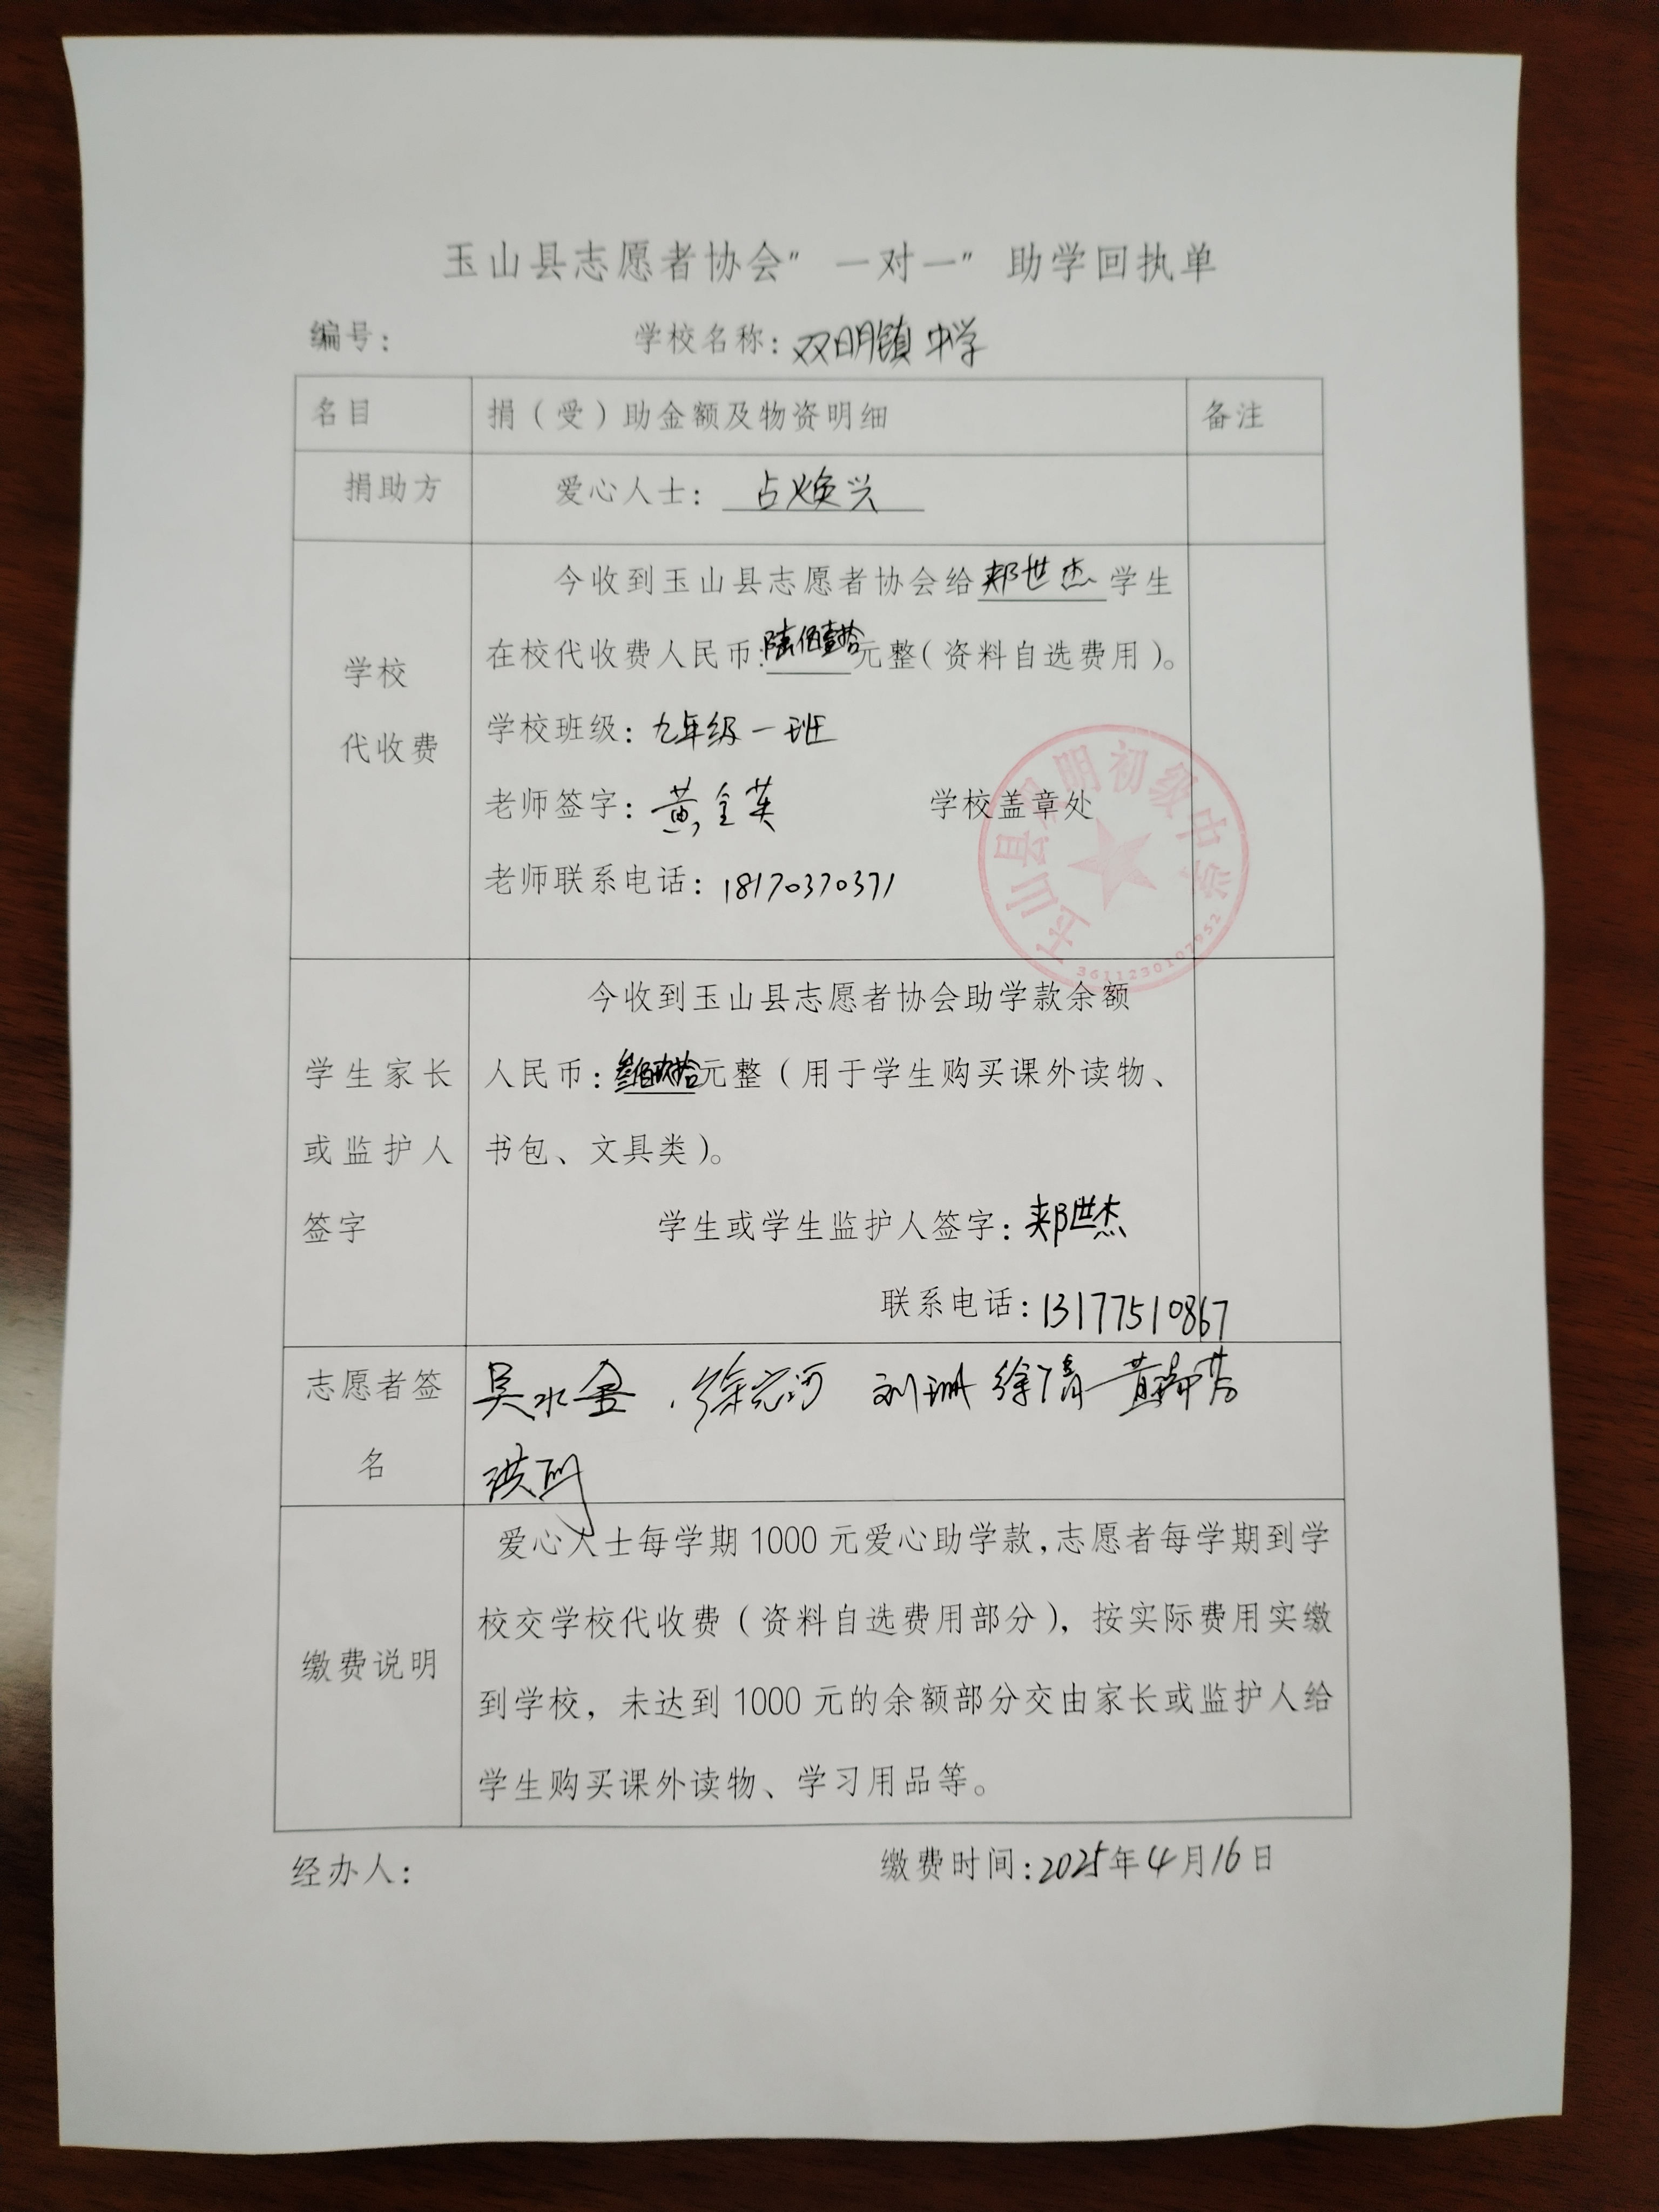 玉山县志愿者协会"一对一"助学回执单
编号：
学校名称：双明镇中学
名目
捐（受）助金额及物资明细
备注
捐助方
爱心人士：占焕兴
学校
代收费
今收到玉山县志愿者协会给郏世杰学生
在校代收费人民币：陆佰壹拾元整（资料自选费用）。
学校班级：九年级一班
老师签字：黄全英
学校盖章处
老师联系电话：18170370371
玉山县双明初级中学
3611230107952
学生家长
或监护人
签字
今收到玉山县志愿者协会助学款余额
人民币：叁佰玖拾元整（用于学生购买课外读物、
书包、文具类）。
学生或学生监护人签字：郏世杰
联系电话：13177510867
志愿者签
名
吴水金 徐 刘珊 徐倩 黄
洪
缴费说明
爱心人士每学期1000元爱心助学款，志愿者每学期到学
校交学校代收费（资料自选费用部分），按实际费用实缴
到学校，未达到1000元的余额部分交由家长或监护人给
学生购买课外读物、学习用品等。
经办人：
缴费时间：2025年4月16日